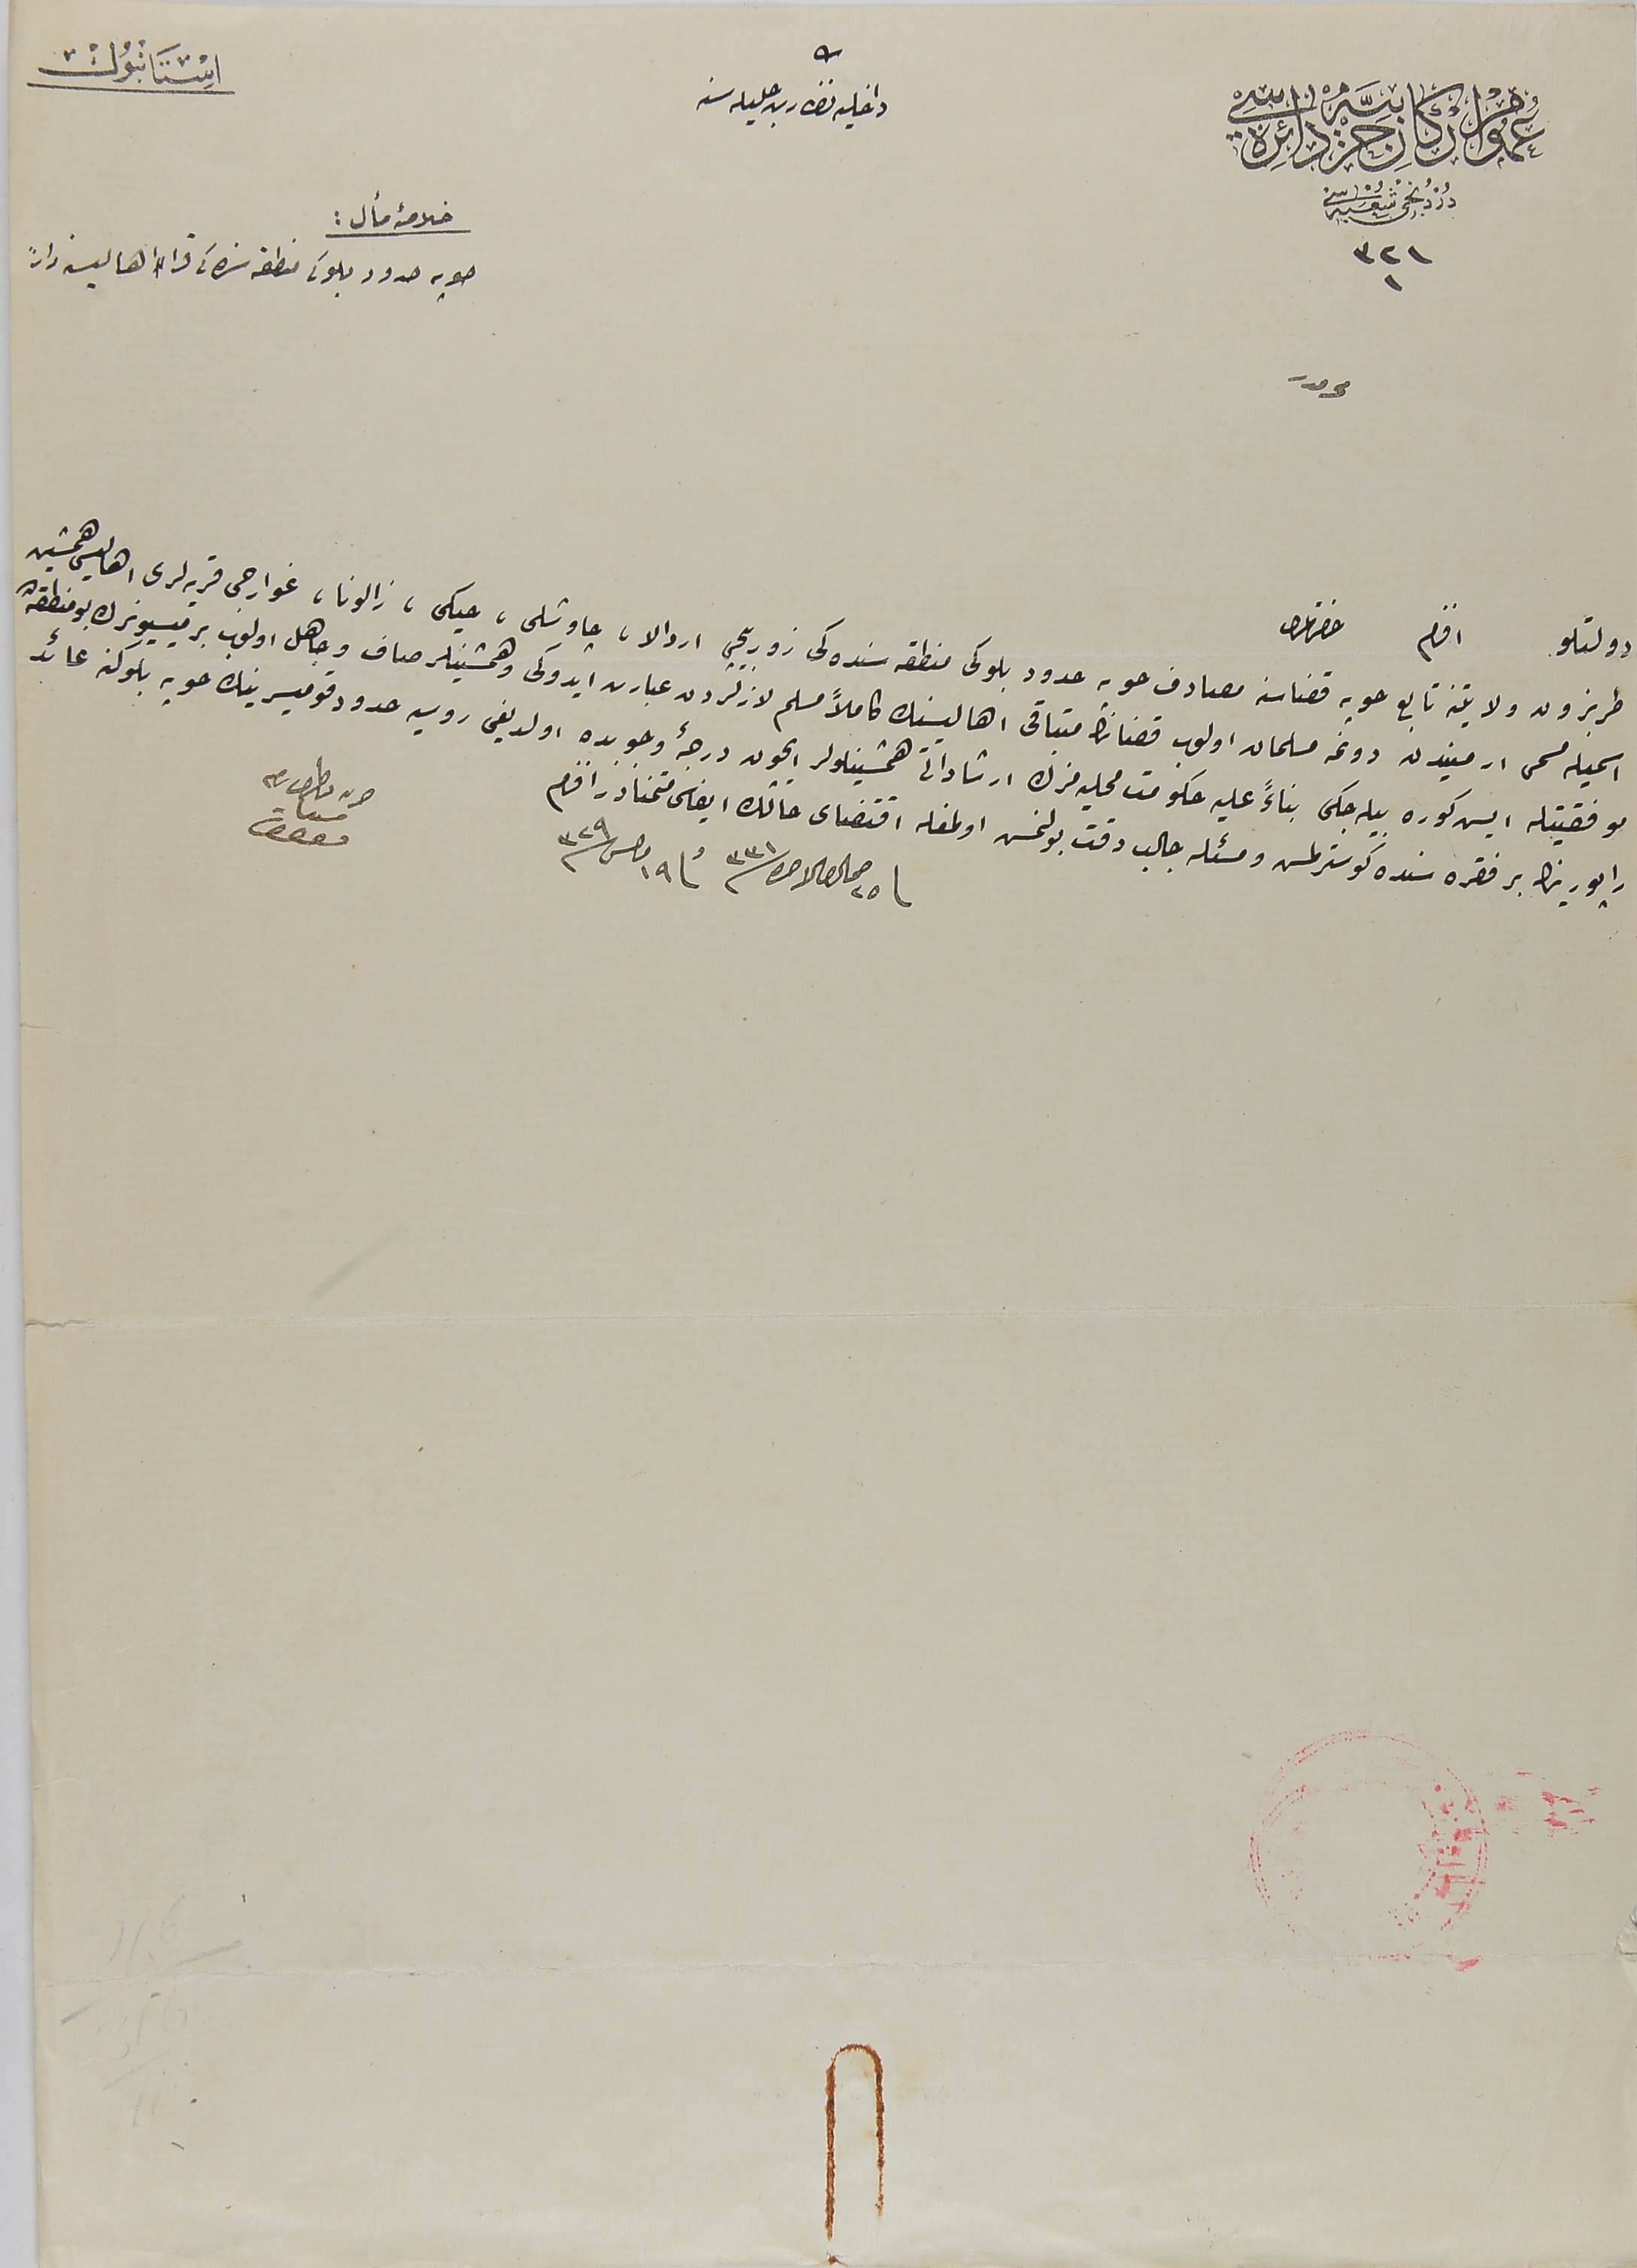 استانبول
داخلیه نظارت جلیله سنه
عموم ارکان حربیه دائره سی
دردنجی شعبه سی
٣٢١
١
خلاصهٔ مأل :
خوپه حدود بلوکی منطقه سنده کی قرا اهالیسنه دائر
دولتلو افندم حضرتلری
طربزون ولایتنه تابع خوپه قضاسنه مصادف خوپه حدود بلوکی منطقه سنده کی زوربیجی اردالا ، چاوشلی ، جیکی ، زالونا ، غوارجی قریه لری اهالیسی همشین
اسمیله مسمی ارمنیدن دونمه مسلمان اولوب قضانڭ متباقی اهالیسنك کاملاً مسلم لازلردن عبارت ایدوکی و همشینیلر صاف و جاهل اولوب بر میسیونرك بو منطقه ده
موفقیتله ایش کوره بیله جکی بناءً علیه حکومت محلیه مزك ارشاداتی همشینلولر ایچون درجهٔ وجوبده اولدیغی روسیه حدود قومیسرینك خوپه بلوکنه عائد
راپورینڭ بر فقره سنده کوسترلمش و مسئله جالب دقت بولنمش اولمغله اقتضای حالك ایفاسی متمنادر افندم
فی ٢٥ جمادی الاخره ٣٣١ و فی ١٩ مایس ٣٢٩
حربیه ناظری نامنه
مستشار